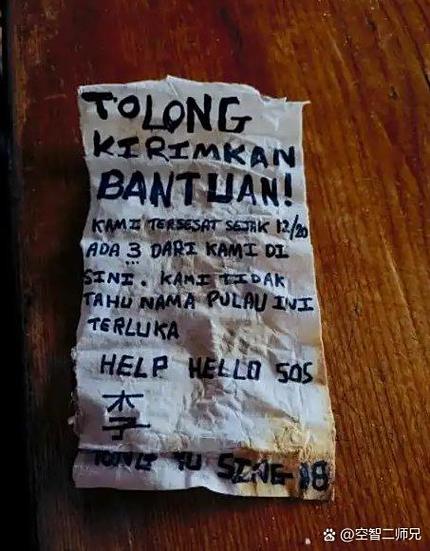 TOLONG
KIRIMKAN
BANTUAN!
KAMI TERSESAT SEJAK 12/20
ADA 3 DARI KAMI DI
SINI. KAMI TIDAK
TAHU NAMA PULAU INI
TERLUKA
HELP HELLO SOS
木
子
YU SING 18
@空智二师兄